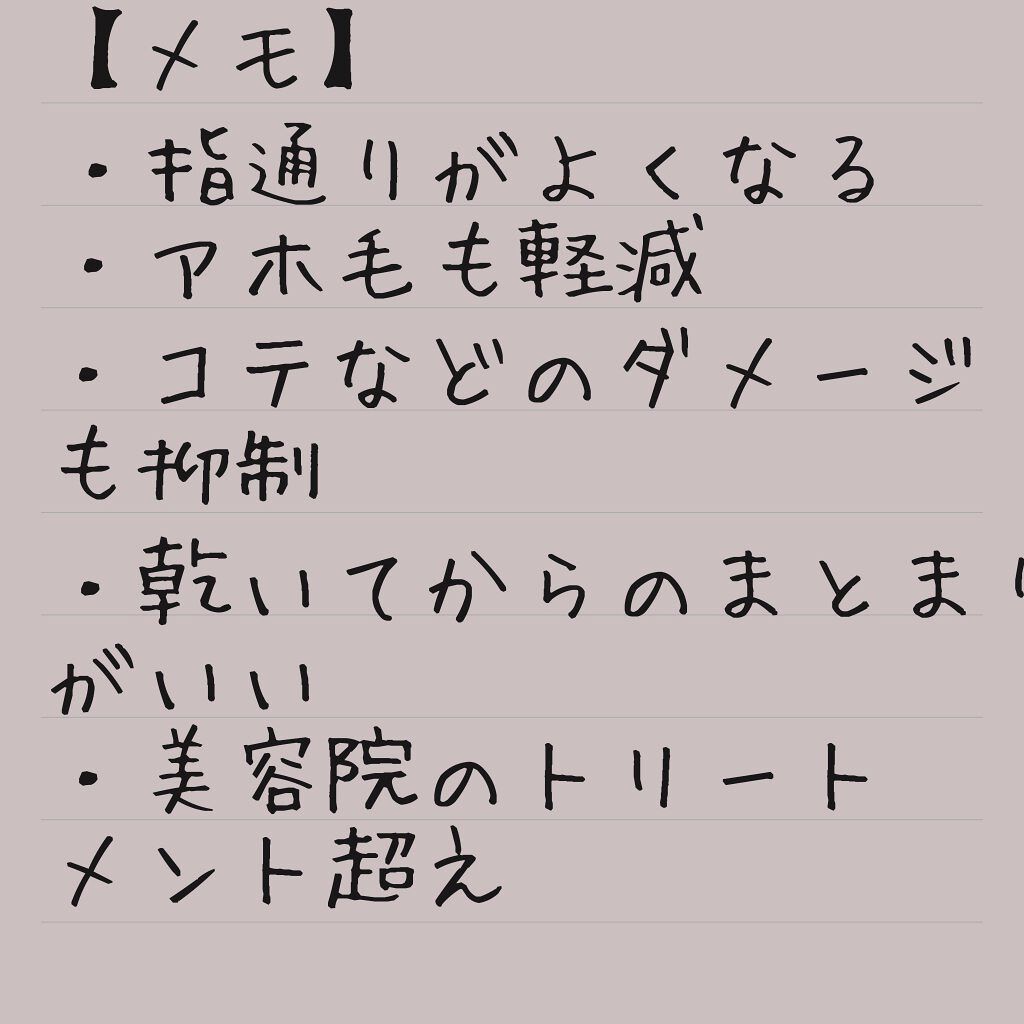 【メモ】
・指通りがよくなる
・アホ毛も軽減
・コテなどのダメージ
も抑制
・乾いてからのまとまり
がいい
・美容院のトリート
メント超え